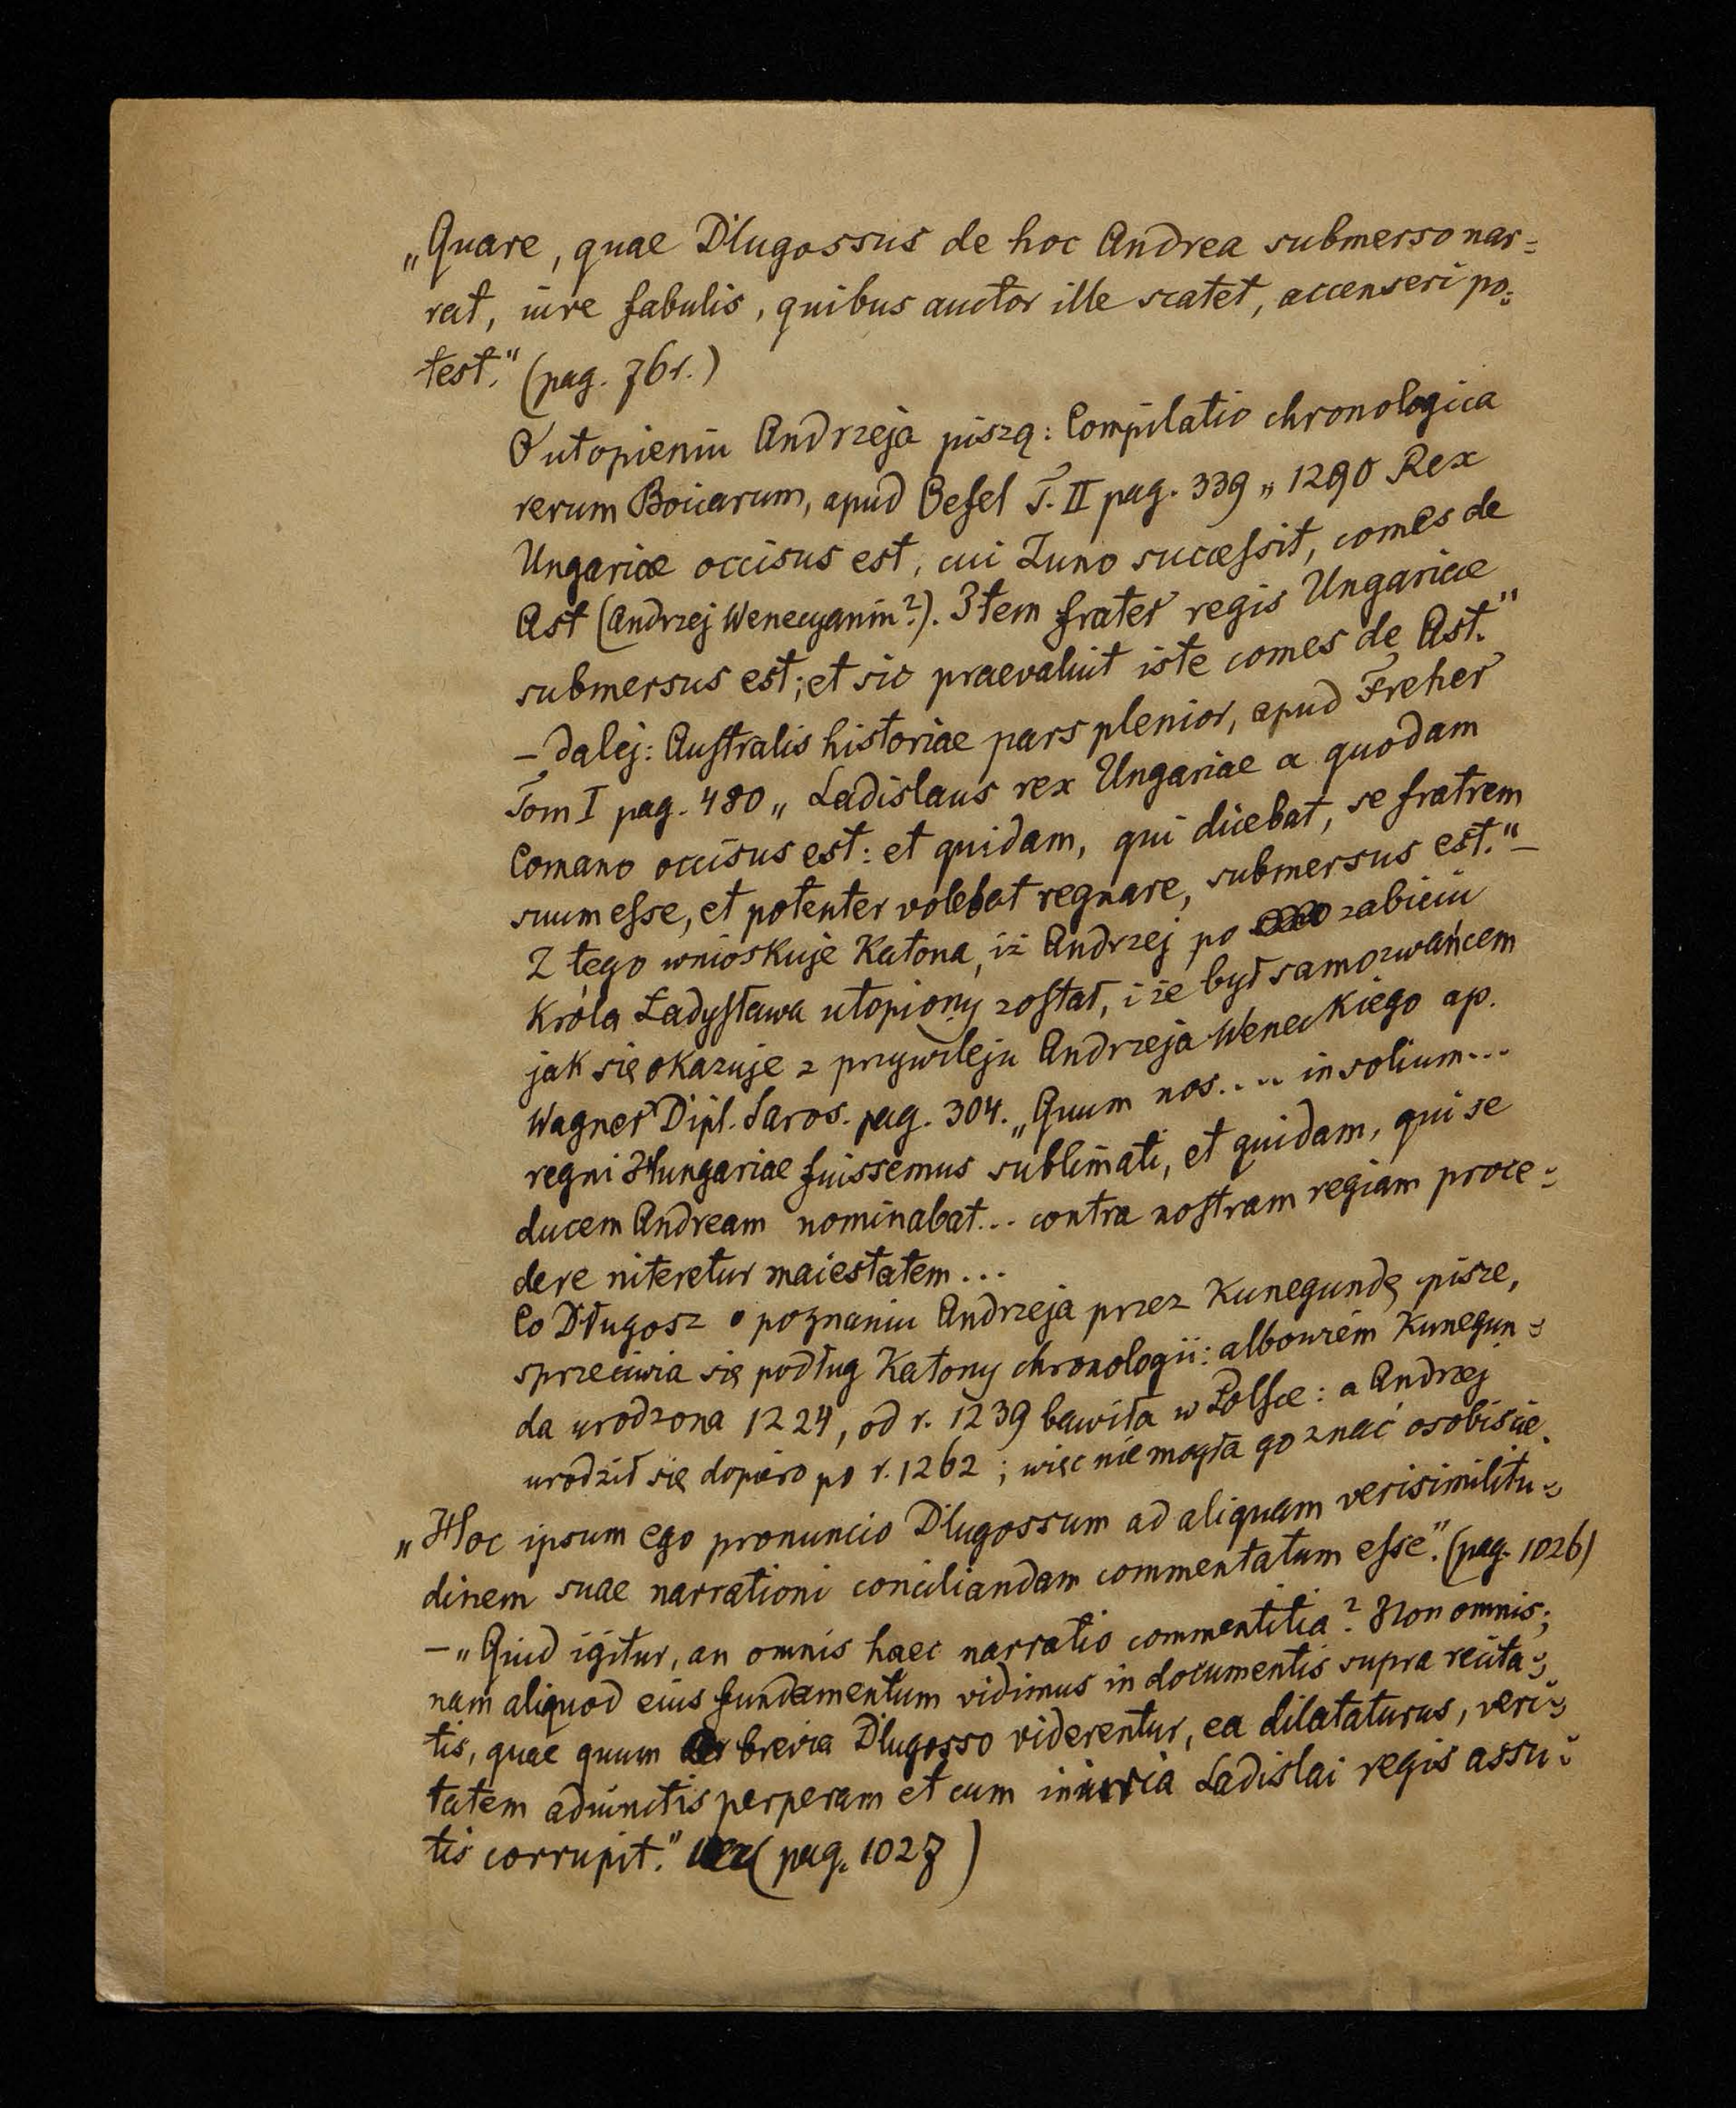 „Quare, quae Dlugossus de hoc Andrea submerso nar=
rat, iure fabulis, quibus auctor ille scatet, accenseri po=
test." (pag. 761.)
O utopieniu Andrzeja piszą: Compilatio chronologica
rerum Boicarum, apud Oefel T. II pag. 339 „1290 Rex
Ungariae occisus est, cui Zuno succeſsit, comes de
Ast (Andrzej Wenecyanin?). Item frater regis Ungariae
submersus est; et sic praevaluit iste comes de Ast."
– dalej: Auſtralis historiae pars plenior, apud Freher
Tom I pag. 480 „Ladislaus rex Ungariae a quodam
Comano occisus est: et quidam, qui dicebat, se fratrem
suum eſse, et potenter volebat regnare, submersus est." –
Z tego wnioskuje Katona, iż Andrzej po zabiciu
Króla Ładyſława utopiony zoſtał, i że był samozwańcem
jak się okazuje z przywileju Andrzeja Weneckiego ap.
Wagner Dipl. Saros. pag. 304. „Quum nos.... in solium...
regni Hungariae fuissemus sublimati, et quidam, qui se
ducem Andream nominabat... contra noſtram regiam proce=
dere niteretur maiestatem...
Co Długosz o poznaniu Andrzeja przez Kunegundę pisze,
sprzeciwia się podług Katony chronologii: albowiem Kunegun=
da urodzona 1224, od r. 1239 bawiła w Polſce: a Andrzej
urodził się dopiero po r. 1262; więc nie mogła go znać osobiście.
„Hoc ipsum ego pronuncio Dlugossum ad aliquam verisimilitu=
dinem suae narrationi conciliandam commentatum eſse". (pag. 1026)
– „Quid igitur, an omnis haec narratio commentitia? Non omnis;
nam aliquod eius fundamentum vidimus in documentis supra recita=
tis, quae quum brevia Dlugosso viderentur, ea dilataturus, veri=
tatem adiunctis perperam et cum iniuria Ladislai regis assu=
tis corrupit." (pag. 1027)